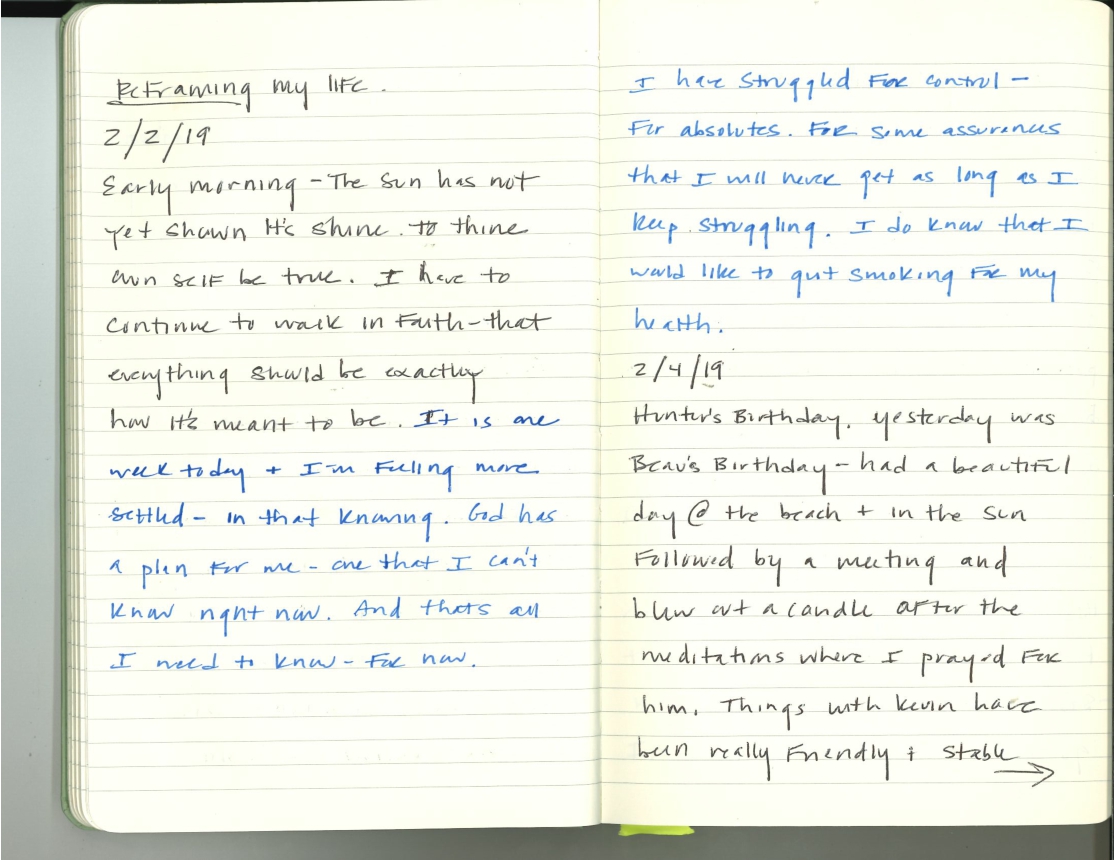 Reframing my life.
2/2/19
Early morning - The sun has not
yet shown it's shine. to thine
own self be true. I have to
continue to walk in Faith - that
everything should be exactly
how it's meant to be. It is one
week today + I'm Feeling more
settled - in that knowing. God has
a plan For me - one that I can't
know right now. And thats all
I need to know - For now.
I have struggled For control -
For absolutes. For some assurances
that I will never get as long as I
keep struggling. I do know that I
would like to quit smoking For my
health.
2/4/19
Hunter's Birthday. yesterday was
Beau's Birthday - had a beautiful
day @ the beach + in the sun
Followed by a meeting and
blew out a candle after the
meditations where I prayed For
him. Things with Kevin have
been really Friendly + stable →